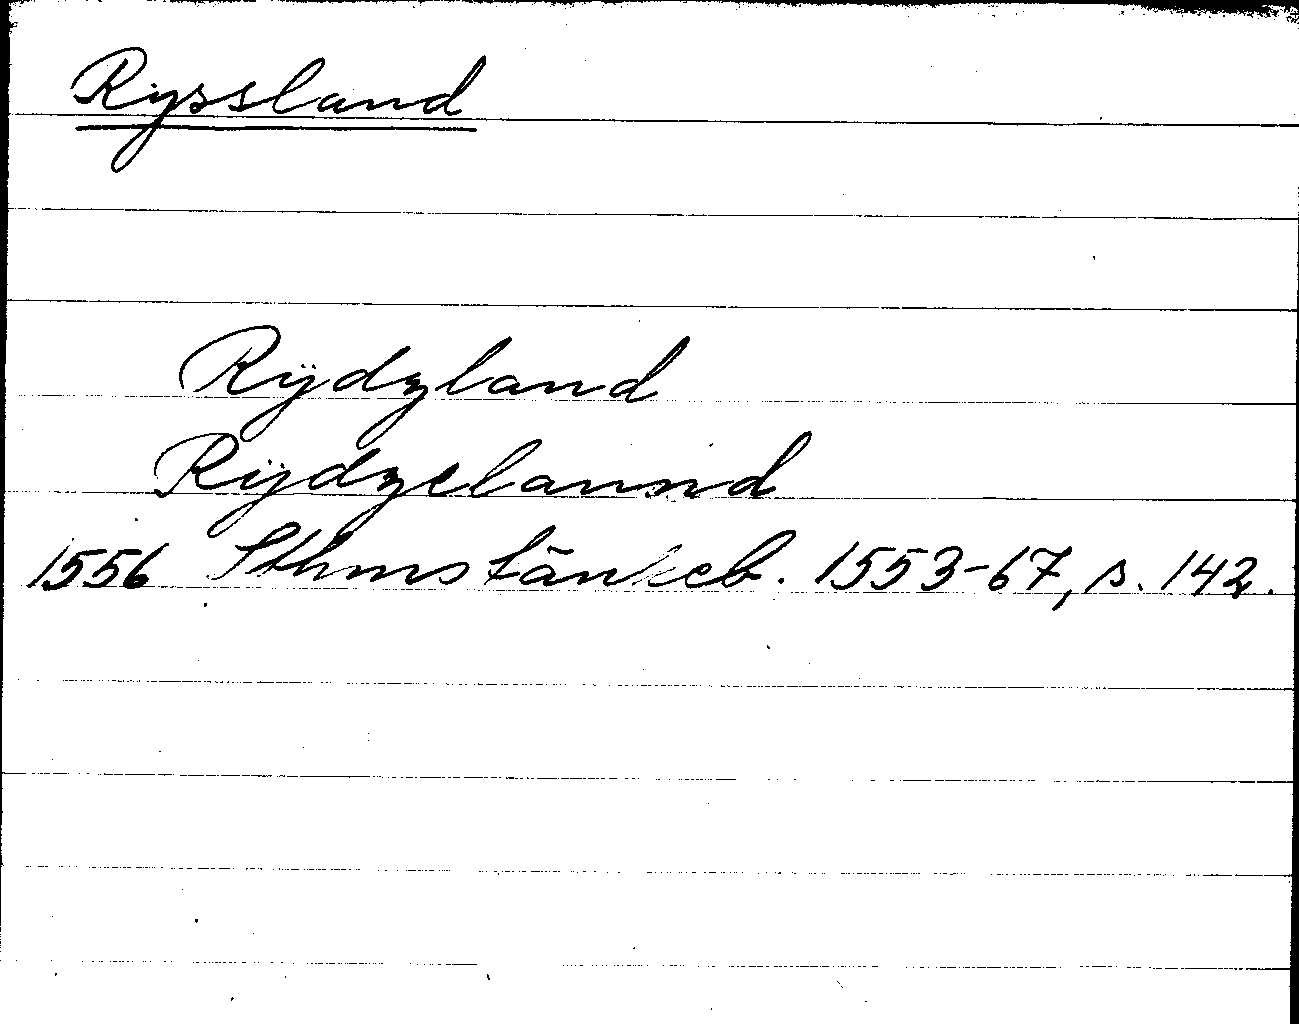 Ryssland
Rÿdzland
Rÿdzelannd
1556 Sthms tänkeb. 1553-67, s. 142.